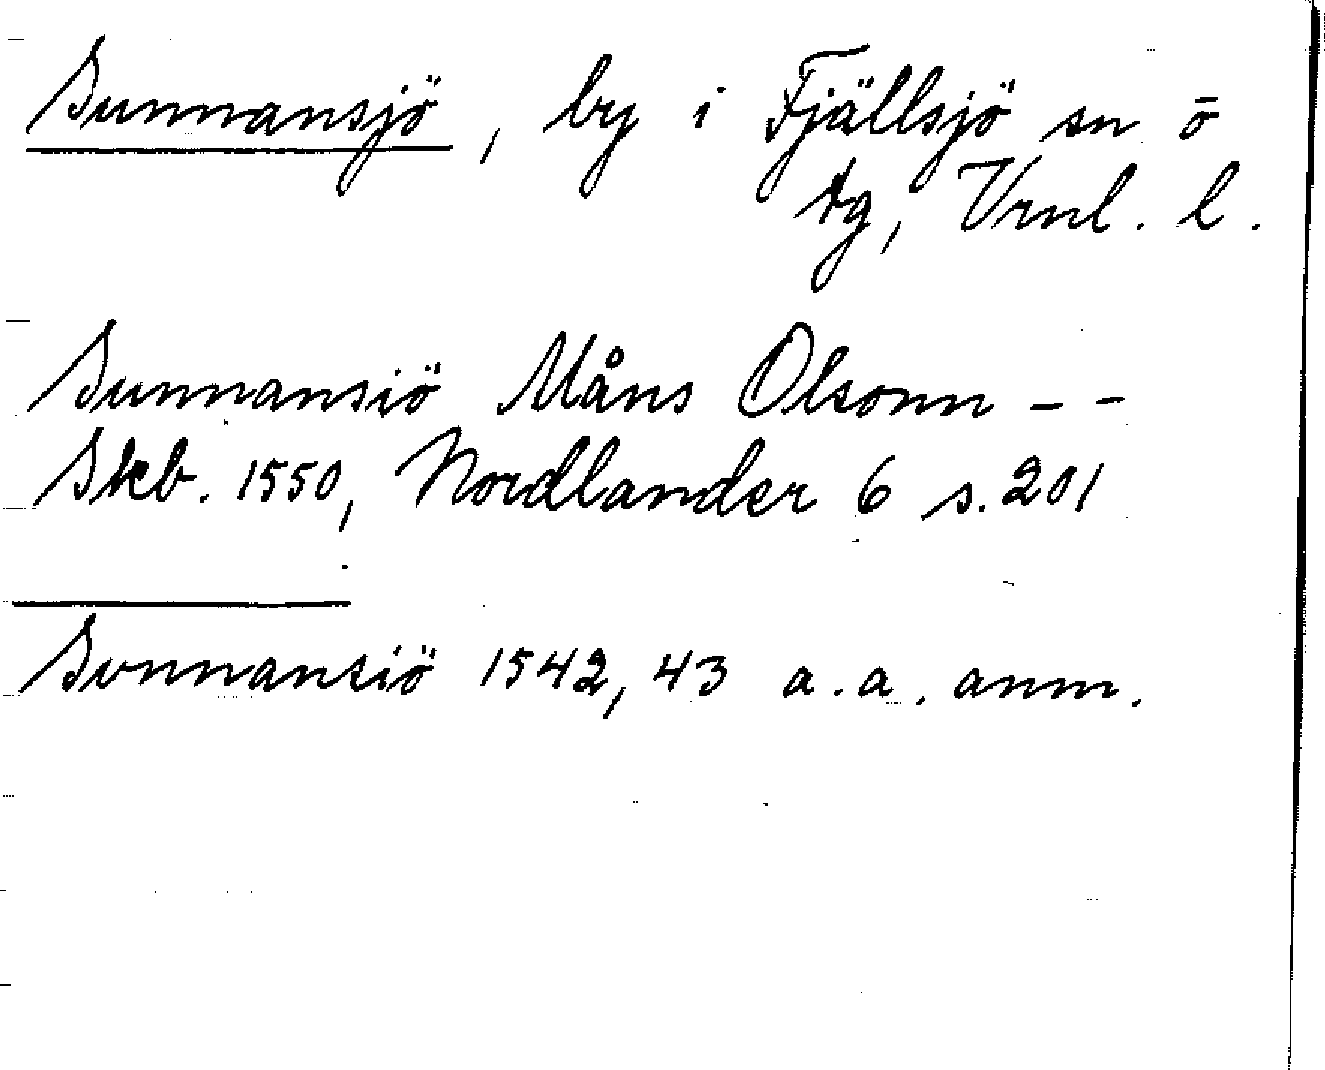 Sunnansjö, by i Fjällsjö sn ö
tg, Vrnl. l.
Sunnansiö Måns Olsonn - -
Skb. 1550, Nordlander 6 s. 201
Svnnansiö 1542, 43 a. a. anm.